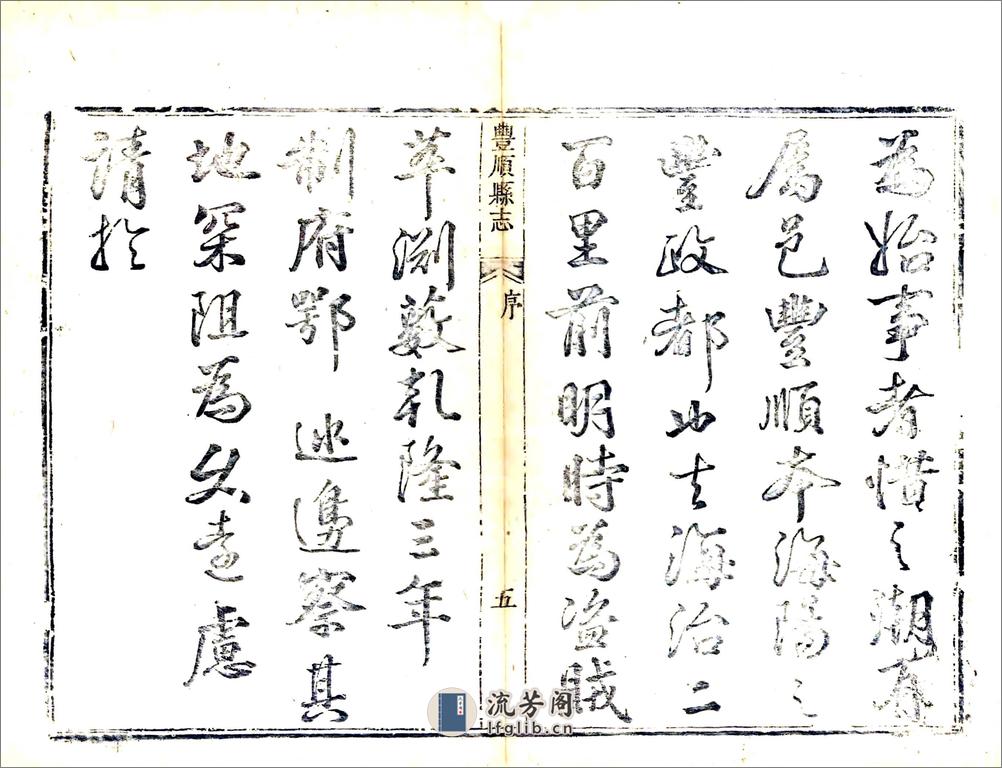 為始事者惜之潮有
屬邑豐順本海陽之
豐政都也去海治二
百里前明時為盜賊
豐順縣志
序
五
萃淵藪乾隆三年
制府鄂 巡邊察其
地深阻為久遠慮
請於
流芳阁
lfglib.cn